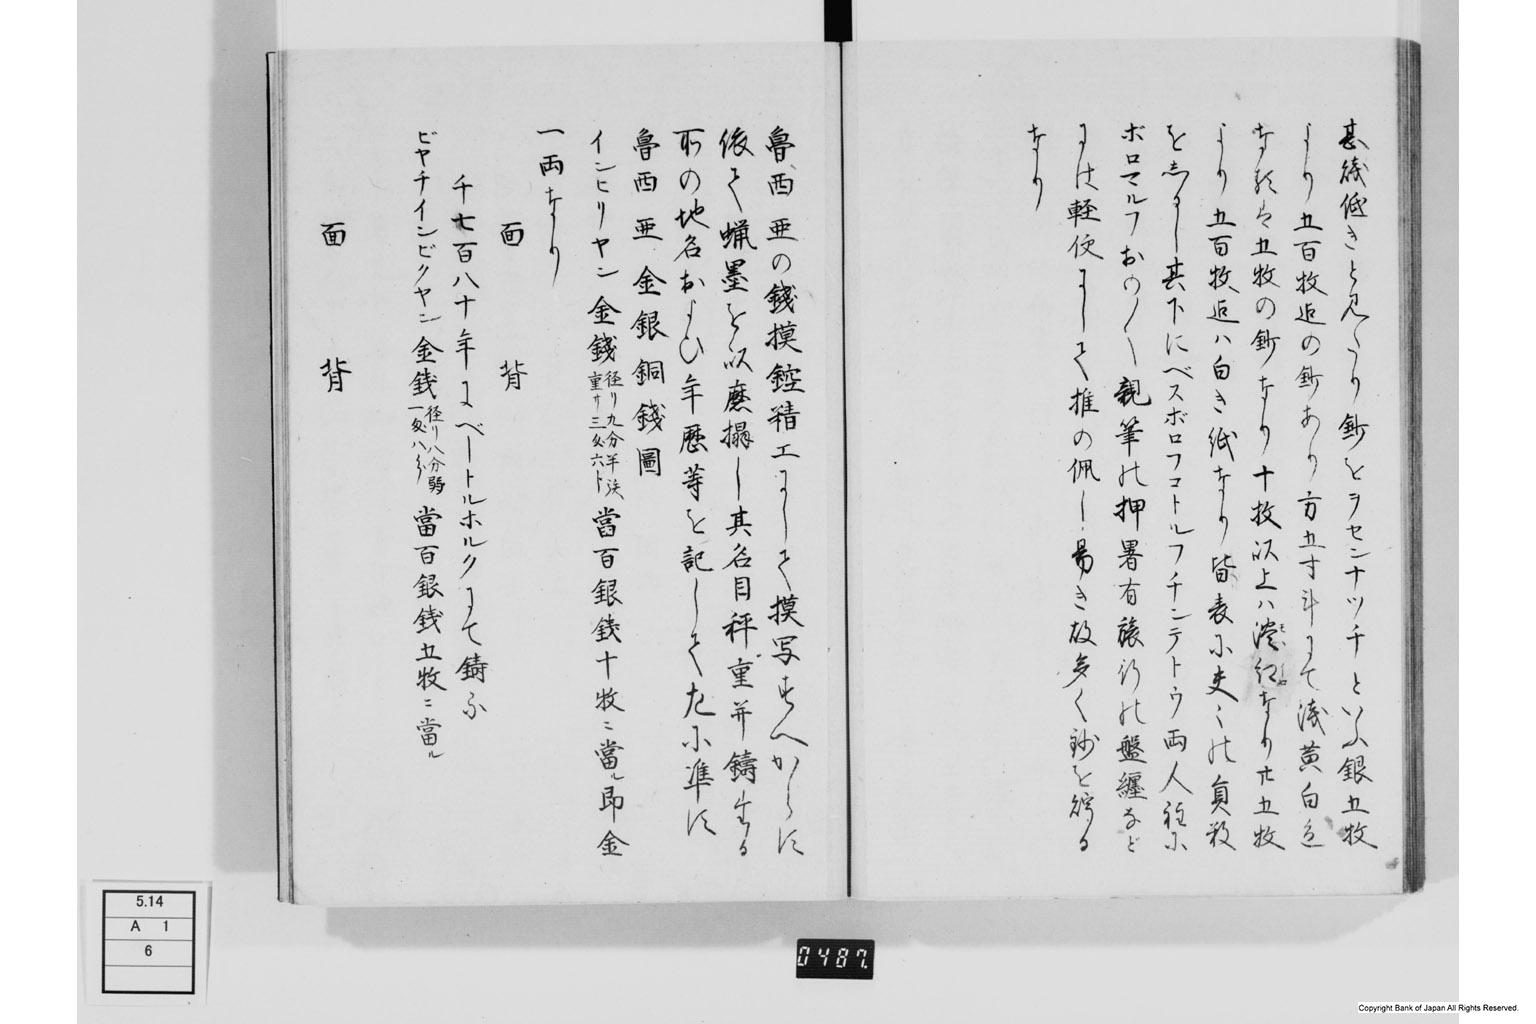 甚綫低きと見へたり鈔をヲセンナツチといふ銀五牧
より五百牧迄の鈔あり方五寸斗にて浅黄白色
なるは五牧の鈔なり十枚以上ハ濃紅なり廿五牧
より五百牧迄ハ白き紙なり皆表に吏々の員数
をしるし其下にベスボロフコトルフチンテトウ両人程に
ボロマルフおの〱親筆の押署有旅行の盤纏など
には軽便にして推の佩し易き故多く鈔を貯る
なり
魯西亜の錢摸鎔精工にして摸写すへからす
依て蝋墨を以磨搨し其名目秤重并鋳造る
所の地名および年歴等を記して左に準す
魯西亜金銀銅錢圖
インヒリヤン金錢 径リ九分半淡 重サ三匁六ト 當百銀銭十牧ニ當ル即金
一両なり
面 背
千七百八十年にベートルホルクにて鋳る
ビヤチインビクヤン金銭 径リ八分弱 一匁八分 當百銀銭五牧ニ當ル
面 背
5.14
A 1
6
0487.
Copyright Bank of Japan All Rights Reserved.